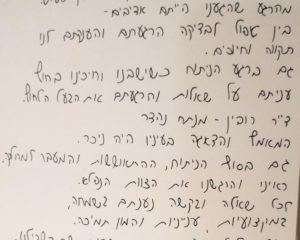 מהרגע שהגענו הייתם אדיבים -
בין טפול לבדיקה הרגעתם והענקתם לנו
תקווה וחיוכים.
גם ברגע הניתוח כשישבנו וחיכינו בחוץ
עניתם על שאלות והרגעתם את הבעל הלחוץ.
ד"ר רובין - מנתח נהדר
המאמץ והדאגה בעיניו היה ניכר.
גם בסוף הניתוח, ההתאוששות והמעבר למחלקה
ראינו והרגשנו את הצוות הנפלא.
לכל שאלה ובקשה נענתם בשמחה,
במקצועיות, ענייניות והמון תמיכה.